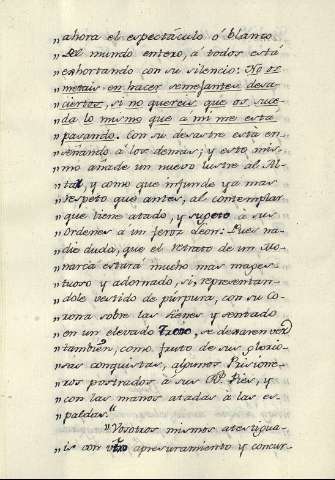 "ahora el espectáculo ó blanco
"del mundo entero, á todos está
"exhortando con su silencio: No os
"metais en hacer semejantes desa-
"ciertos, si no quereis que os suce-
"da lo mismo que a mi me esta
"pasando. Con su desastre está en-
"señando á los demas; y esto mis-
"mo añade un nuevo lustre al Al-
"tar, y como que infunde ya mas
"respeto que antes, al contemplar
"que tiene atado, y sugeto a sus
"ordenes a un feroz Leon: Pues na-
"die duda, que el retrato de un Mo-
"narca estará mucho mas mages-
"tuoso y adornado, si, representan-
"dole vestido de púrpura, con su Co-
"rona sobre las sienes y sentado
"en un elevado Trono, se dexaren ver
"tambien, como fruto de sus glorio-
"sas conquistas, algunos Prisione-
"ros postrados á sus Rs. Pies, y
"con las manos atadas á las es-
"paldas."
"Vosotros mismos atestigua-
is con vtro apresuramiento y concur-